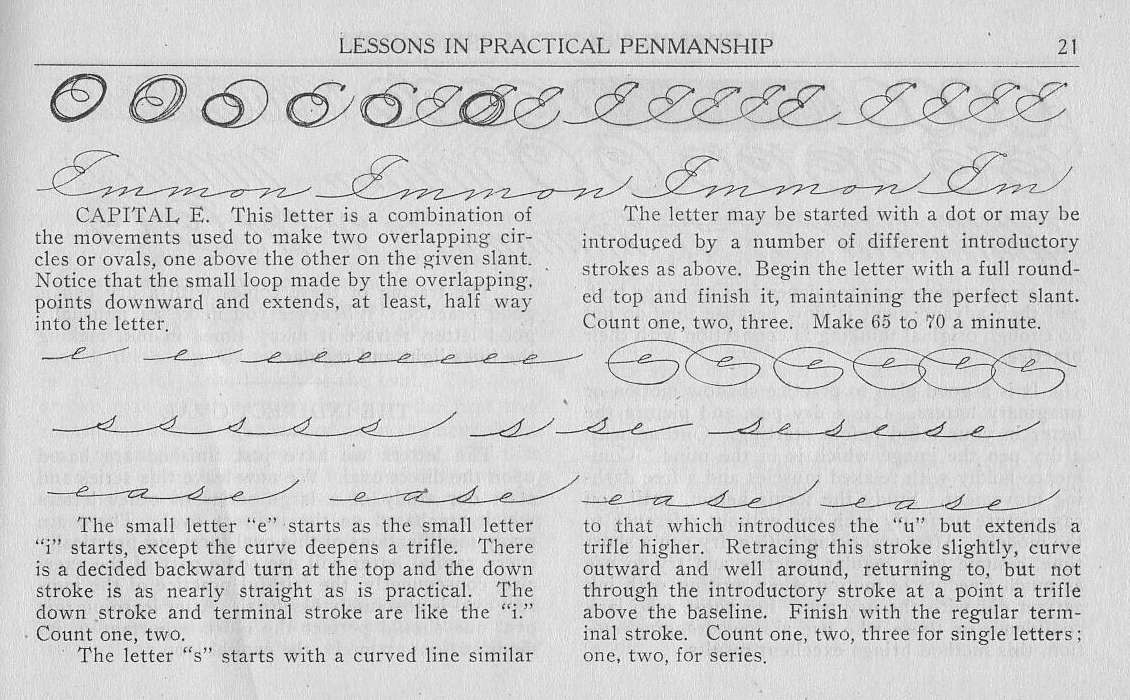 LESSONS IN PRACTICAL PENMANSHIP 21
E E E E E E E E E E E E
Emmon Emmon Emmon Em
CAPITAL E. This letter is a combination of
the movements used to make two overlapping cir-
cles or ovals, one above the other on the given slant.
Notice that the small loop made by the overlapping,
points downward and extends, at least, half way
into the letter.
The letter may be started with a dot or may be
introduced by a number of different introductory
strokes as above. Begin the letter with a full round-
ed top and finish it, maintaining the perfect slant.
Count one, two, three. Make 65 to 70 a minute.
e e e e e e e e e e e e e e
s s s s s s se se se se se
ease ease ease ease
The small letter “e” starts as the small letter
“i” starts, except the curve deepens a trifle. There
is a decided backward turn at the top and the down
stroke is as nearly straight as is practical. The
down stroke and terminal stroke are like the “i.”
Count one, two.
The letter “s” starts with a curved line similar
to that which introduces the “u” but extends a
trifle higher. Retracing this stroke slightly, curve
outward and well around, returning to, but not
through the introductory stroke at a point a trifle
above the baseline. Finish with the regular term-
inal stroke. Count one, two, three for single letters;
one, two, for series.